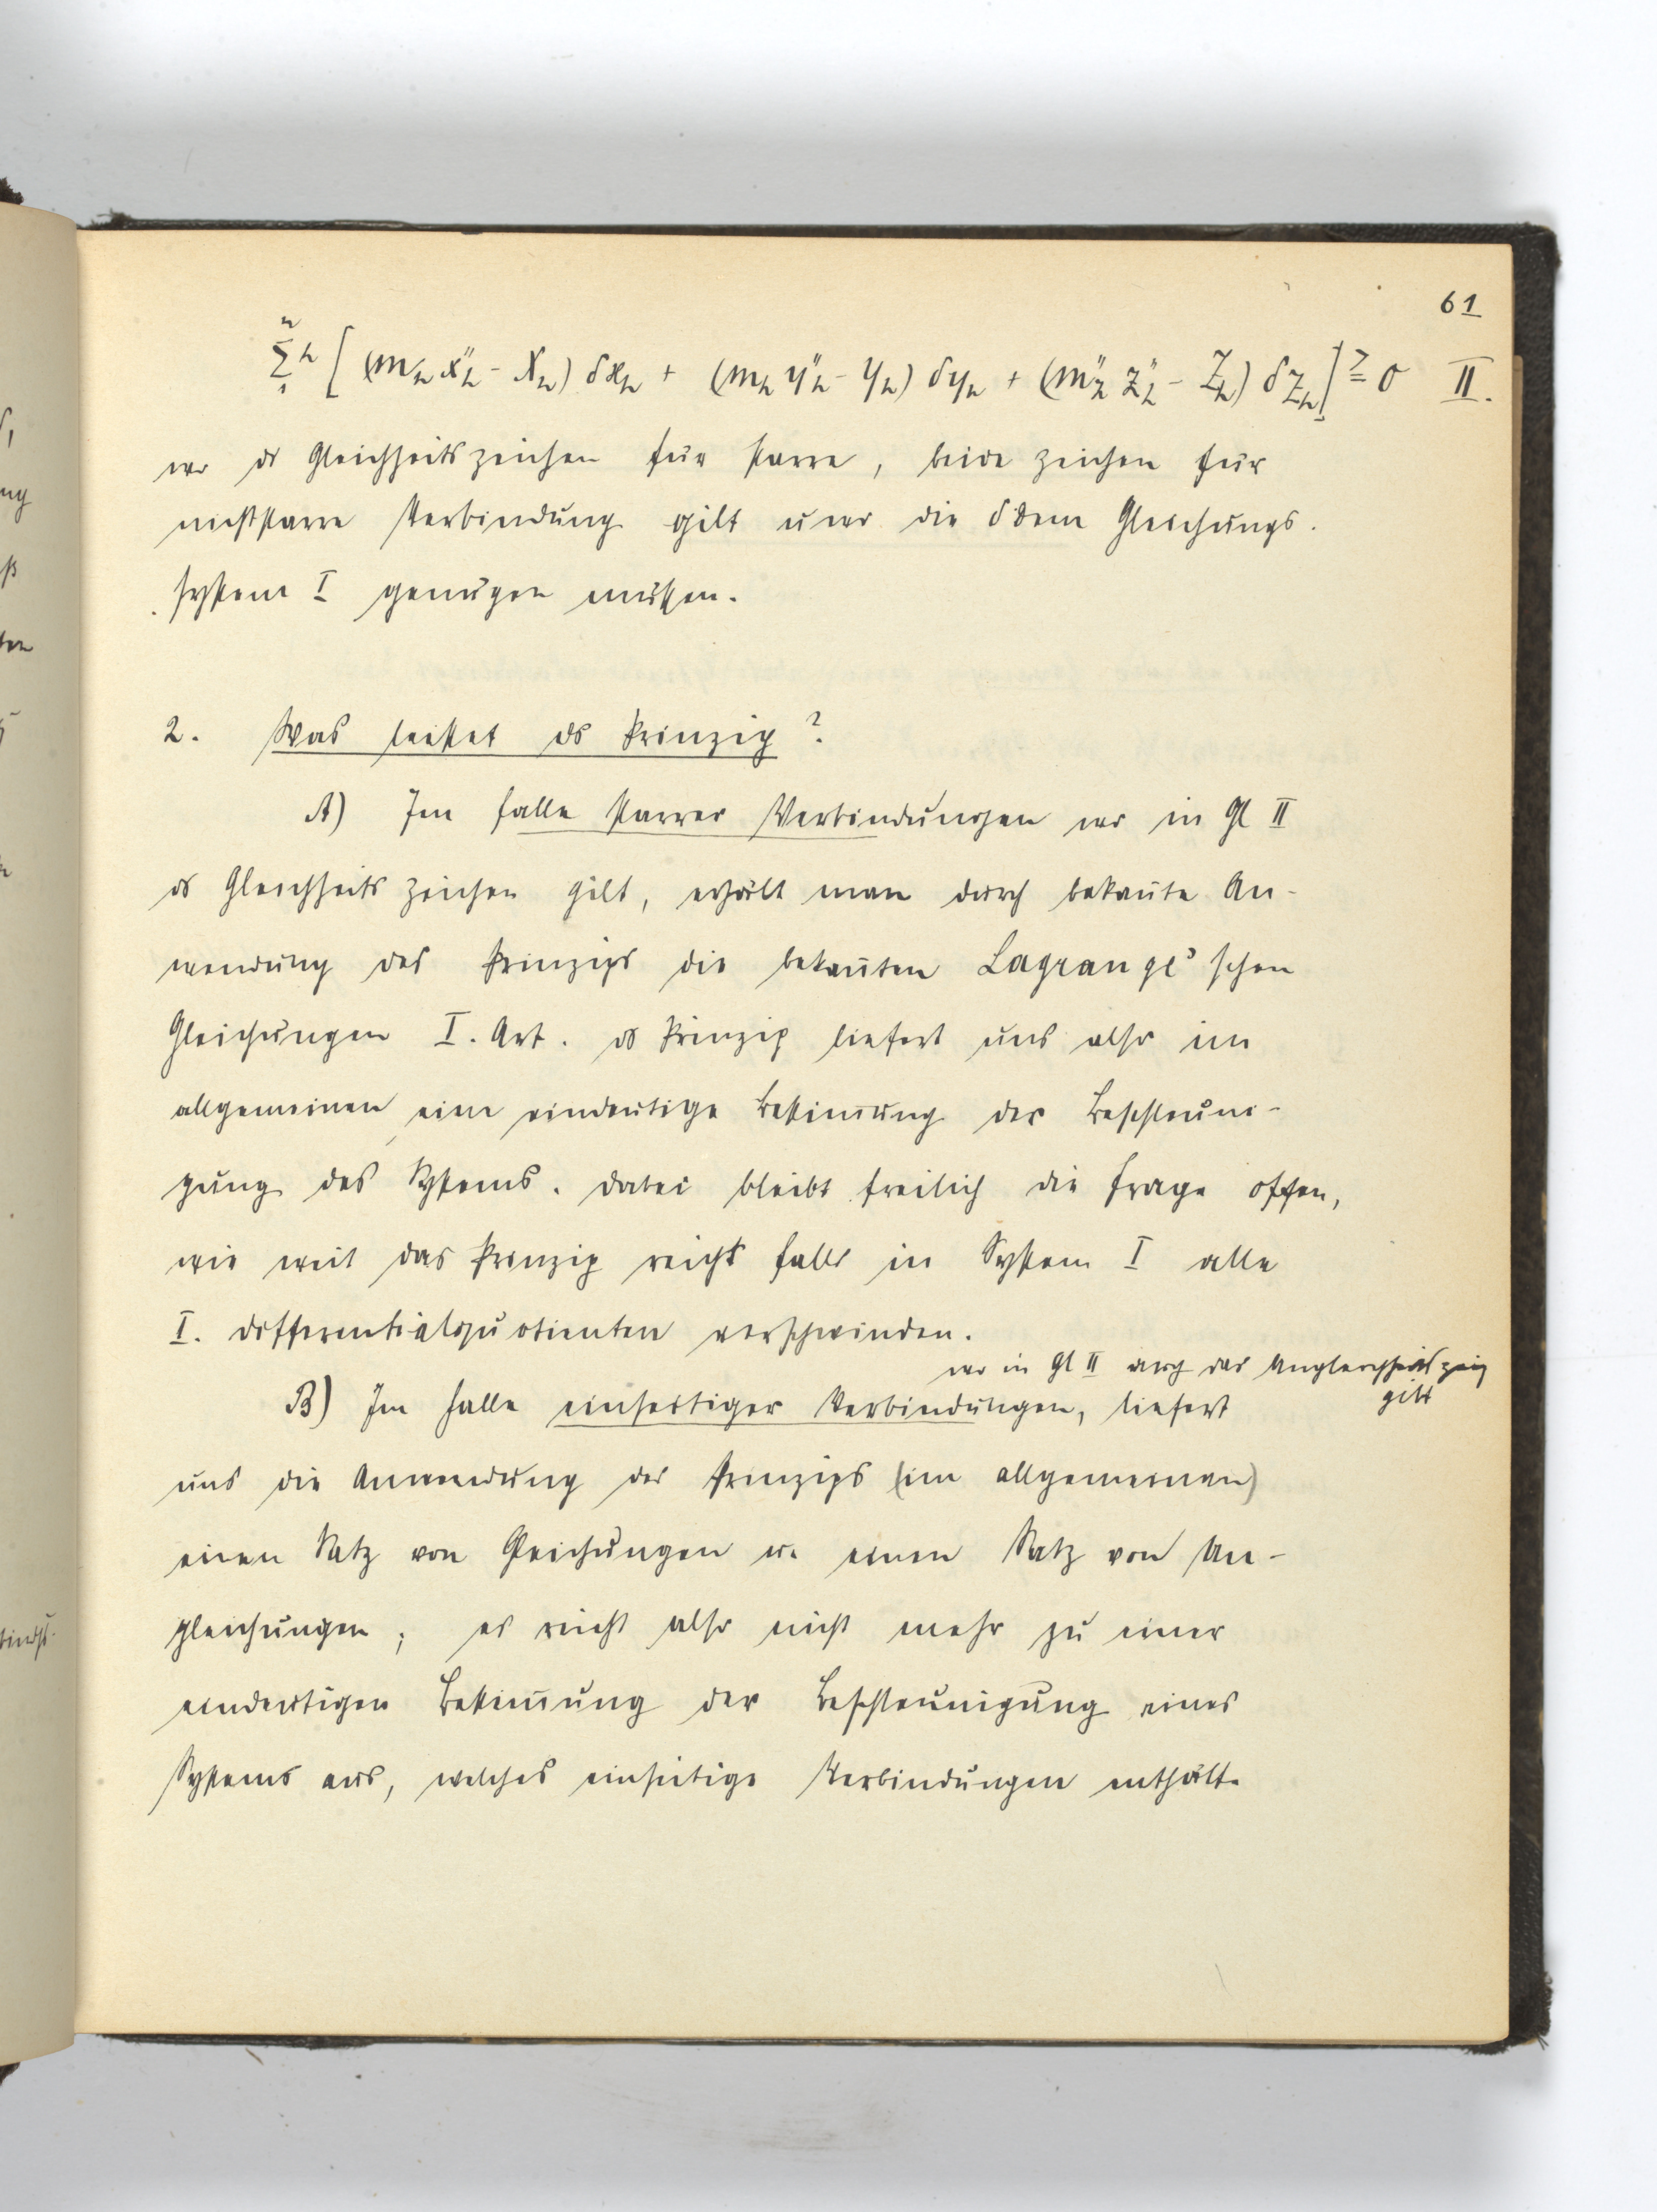 61
n
∑h [ (m_h x_h'' - X_h) δx_h + (m_h y_h'' - Y_h) δy_h + (m_h'' z_h'' - Z_h) δz_h ] ≧ 0 II.
1
wo ds Gleichheitszeichen für starre, beide zeichen für
nichtstarre Verbindung gilt u wo die δ dem Gleichungs.
system I genügen müssen.
2. Was leistet ds Prinzip?
A) Im falle starrer Verbindungen wo in Gl II
ds Gleichheitszeichen gilt, erhält man durch bekan̄te An-
wendung des Prinzips die bekan̄ten Lagrange'schen
Gleichungen I. Art. ds Prinzip liefert uns also im
allgemeinen eine eindeutige Bestim̄ung der Beschleuni-
gung des Systems. dabei bleibt freilich die frage offen,
wie weit das Prinzip reicht falls in System I alle
I. differentialquotienten verschwinden.
wo in Gl II auch das Ungleichheitszeich
gilt
B) Im falle einseitiger Verbindungen, liefert
uns die Anwendung des Prinzips (im allgemeinen)
einen Satz von Gleichungen u. einen Satz von Un-
gleichungen; es reicht also nicht mehr zu einer
eindeutigen Bestim̄ung der Beschleunigung eines
Systems aus, welches einseitige Verbindungen enthält.